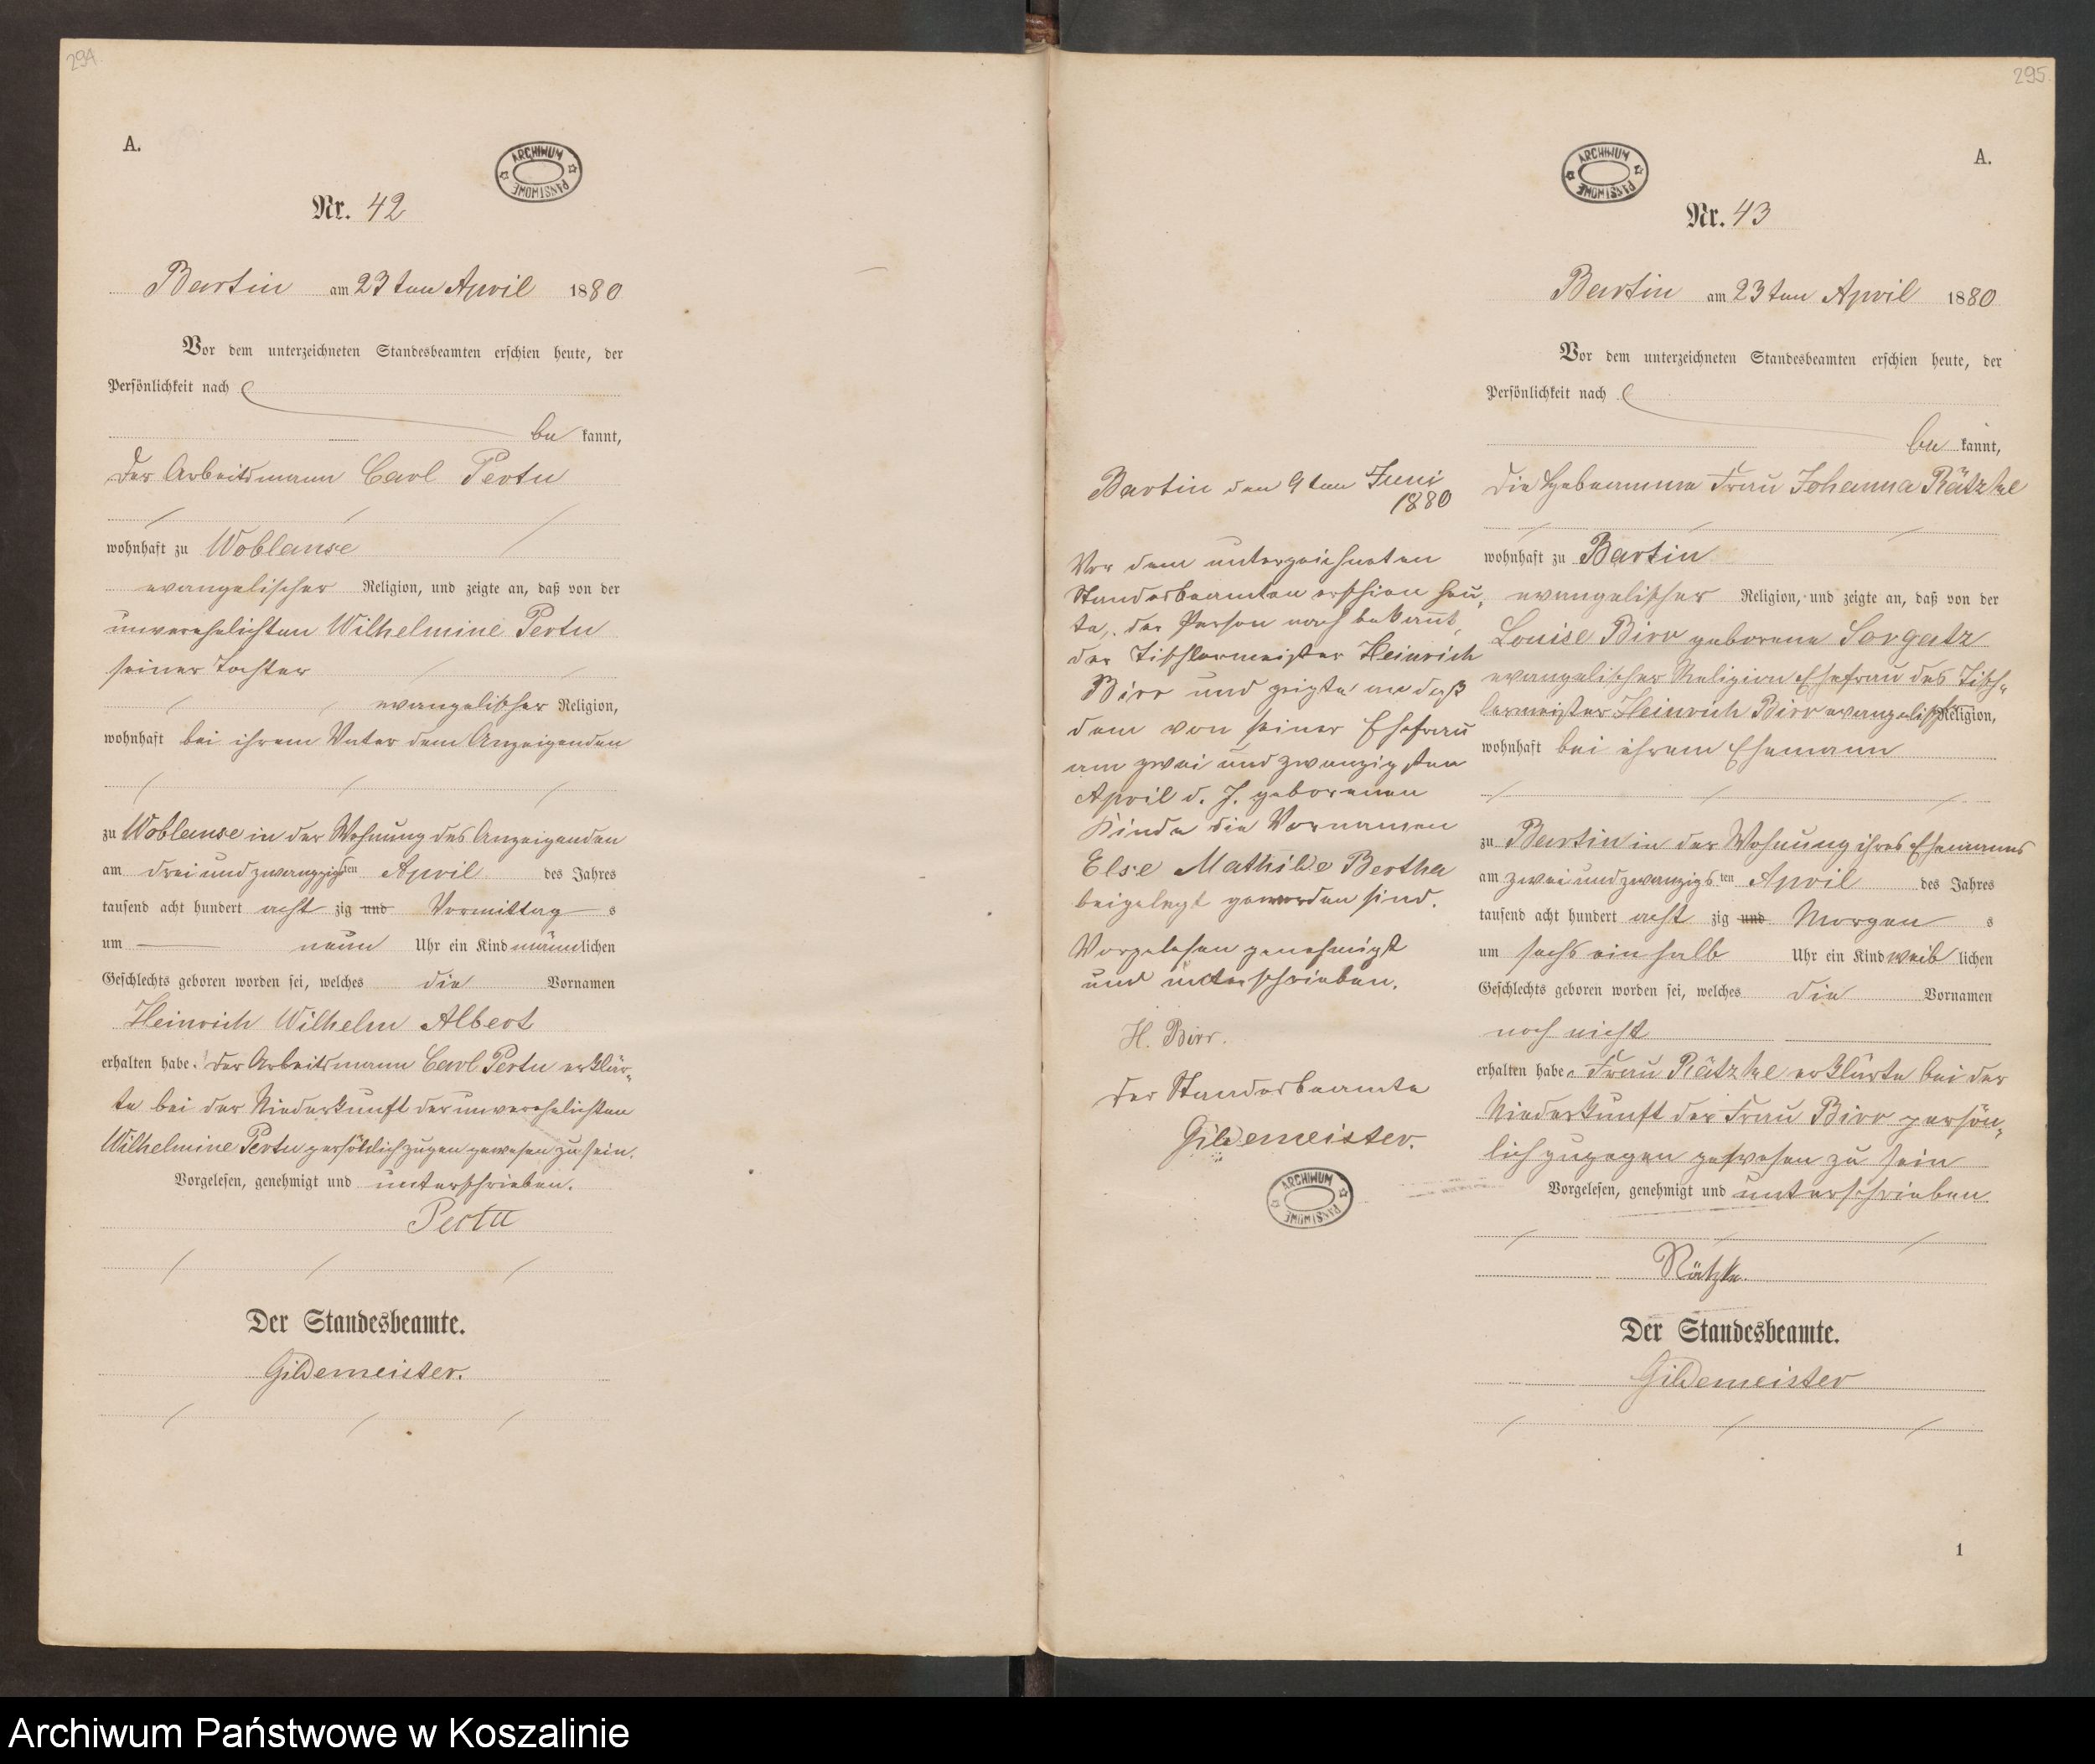 294.
A.
ARCHIWUM PAŃSTWOWE
Nr. 42
Bartin am 23ten April 1880
Vor dem unterzeichneten Standesbeamten erschien heute, der
Persönlichkeit nach
be kannt,
der Arbeitsmann Carl Pertu
wohnhaft zu Woblanse
evangelischer Religion, und zeigte an, daß von der
unverehelichten Wilhelmine Pertu
seiner Tochter
evangelischer Religion,
wohnhaft bei ihrem Vater dem Anzeigenden
zu Woblanse in der Wohnung des Anzeigenden
am drei und zwanzigsten April des Jahres
tausend acht hundert acht zig und Vormittag s
um neun Uhr ein Kind männlichen
Geschlechts geboren worden sei, welches die Vornamen
Heinrich Wilhelm Albert
erhalten habe. Der Arbeitsmann Carl Pertu erklär-
te bei der Niederkunft der unverehelichten
Wilhelmine Pertu persönlich zugen gewesen zu sein.
Vorgelesen, genehmigt und unterschrieben.
Pertu
Der Standesbeamte.
Gildemeister.
295.
A.
ARCHIWUM PAŃSTWOWE
Nr. 43
Bartin am 23ten April 1880
Vor dem unterzeichneten Standesbeamten erschien heute, der
Persönlichkeit nach
be kannt,
die Hebeamme Frau Johanna Rätzke
wohnhaft zu Bartin
evangelischer Religion, und zeigte an, daß von der
Louise Birr geborene Sorgatz
evangelischer Religion Ehefrau des Tisch-
lermeister Heinrich Birr evangelisch Religion,
wohnhaft bei ihrem Ehemann
zu Bartin in der Wohnung ihres Ehemanns
am zwei und zwanzigs ten April des Jahres
tausend acht hundert acht zig und Morgen s
um sechs ein halb Uhr ein Kind weib lichen
Geschlechts geboren worden sei, welches die Vornamen
noch nicht
erhalten habe. Frau Rätzke erklärte bei der
Niederkunft der Frau Birr persön-
lich zugegen gewesen zu sein
Vorgelesen, genehmigt und unterschrieben
Rätzke.
Der Standesbeamte.
Gildemeister
1
Bartin den 9ten Juni
1880
Vor dem unterzeichneten
Standesbeamten erschien heu-
te, der Person nach bekannt,
der Tischlermeister Heinrich
Birr und zeigte an daß
dem von seiner Ehefrau
am zwei und zwanzigsten
April d. J. geborenen
Kinde die Vornamen
Else Mathilde Bertha
beigelegt geworden sind.
Vorgelesen genehmigt
und unterschrieben.
H. Birr.
Der Standesbeamte
Gildemeister.
ARCHIWUM PAŃSTWOWE
Archiwum Państwowe w Koszalinie